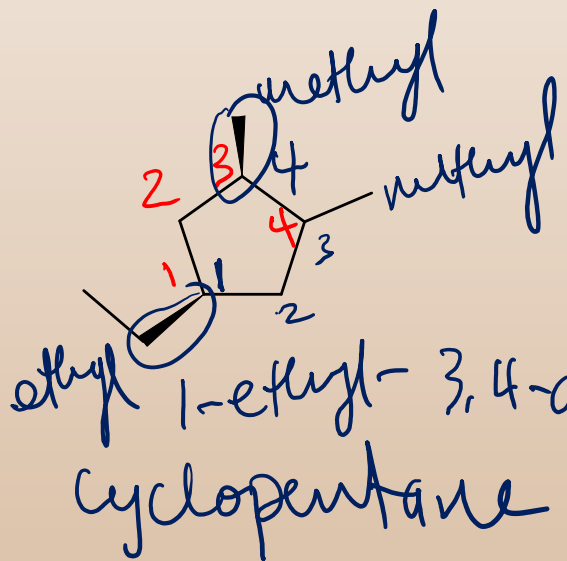 methyl
3 4
2 methyl
4
3
1 1
2
ethyl
1-ethyl- 3,4-d
cyclopentane